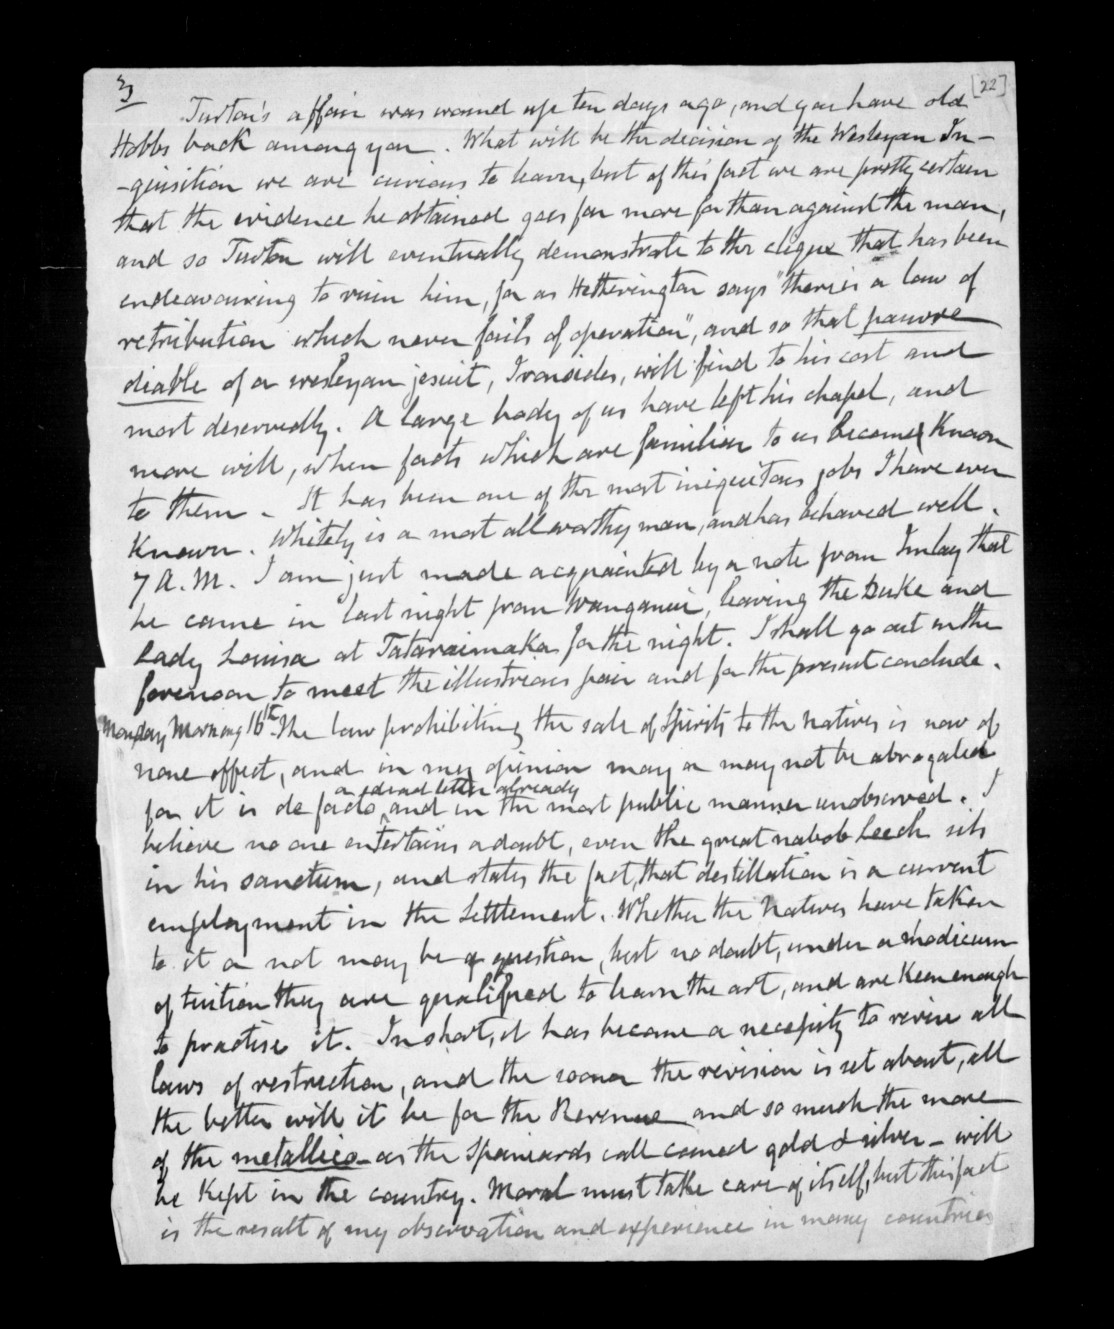 3
[22]
Turton's affair was wound up ten days ago, and you have old
Hobbs back among you. What will be the decision of the Wesleyan In-
-quisition we are curious to learn, but of this fact we are pretty certain
that the evidence he obtained goes far more for than against the man,
and so Turton will eventually demonstrate to the clique that has been
endeavouring to ruin him, for as Hetherington says "there is a law of
retribution which never fails of operation", and so that pauvre
diable of a wesleyan jesuit, Ironsides, will find to his cost and
most deservedly. A large body of us have left his chapel, and
more will, when facts which are familiar to us become known
to them - It has been one of the most iniquitous jobs I have ever
known. Whitely is a most allworthy man, and has behaved well.
7 A.M. I am just made acquainted by a note from Imlay that
he came in last night from Wanganui, leaving the Duke and
Lady Louisa at Tataraimaka for the night. I shall go out in the
forenoon to meet the illustrious pair and for the present conclude.
Monday Morning 16th. The law prohibiting the sale of Spirits to the natives is now of
none effect, and in my opinion may or may not be abrogated
for it is de facto a dead letter already and in the most public manner unobserved. I
believe no one entertains a doubt, even the great nabob Leech sits
in his sanctum, and states the fact, that destillation is a current
employment in the Settlement. Whether the Natives have taken
to it or not may be a question, but no doubt, under a modicum
of tuition they are qualified to learn the art, and are keen enough
to practise it. In short, it has become a necessity to revise all
laws of restriction, and the sooner the revision is set about, all
the better will it be for the Revenue and so much the more
of the metallico - as the Spaniards call coined gold & silver - will
be kept in the country. Moral must take care of itself, but this fact
is the result of my observation and experience in many countries